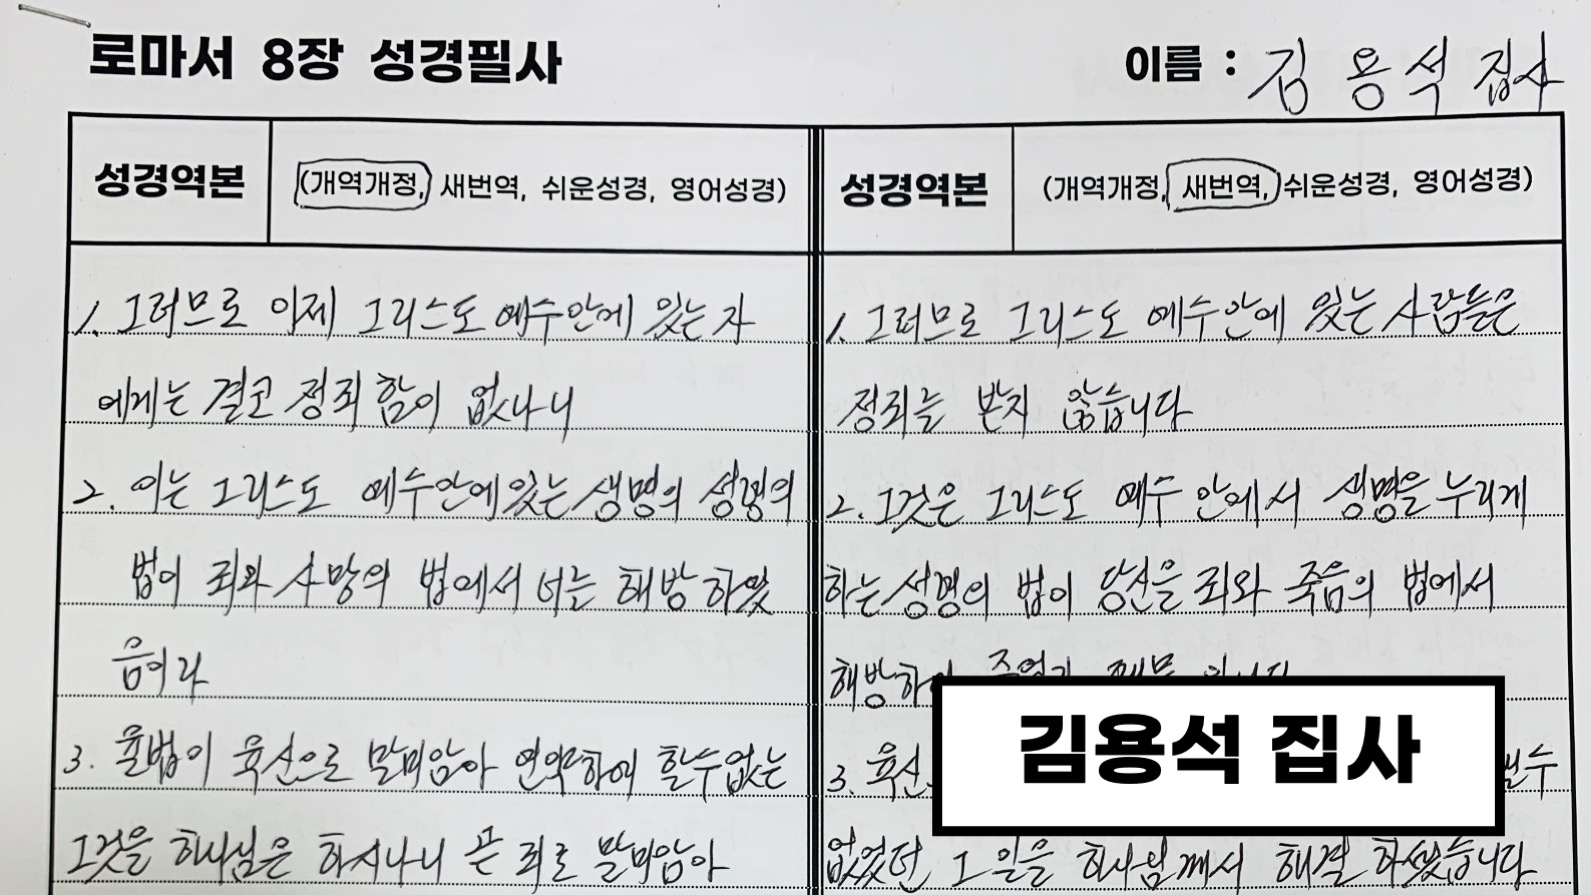 로마서 8장 성경필사
이름 : 김용석 집사
성경역본
(개역개정, 새번역, 쉬운성경, 영어성경)
1. 그러므로 이제 그리스도 예수안에 있는 자
에게는 결코 정죄함이 없나니
2. 이는 그리스도 예수안에있는 생명의 성령의
법이 죄와 사망의 법에서 너를 해방하였
음이라
3. 율법이 육신으로 말미암아 연약하여 할수없는
그것을 하나님은 하시나니 곧 죄로 말미암아
성경역본
(개역개정, 새번역, 쉬운성경, 영어성경)
1. 그러므로 그리스도 예수안에 있는 사람들은
정죄를 받지 않습니다
2. 그것은 그리스도 예수 안에서 생명을 누리게
하는 성령의 법이 당신을 죄와 죽음의 법에서
해방하
3. 육신
수
없었던 그 일을 하나님께서 해결 하셨습니다
김용석 집사